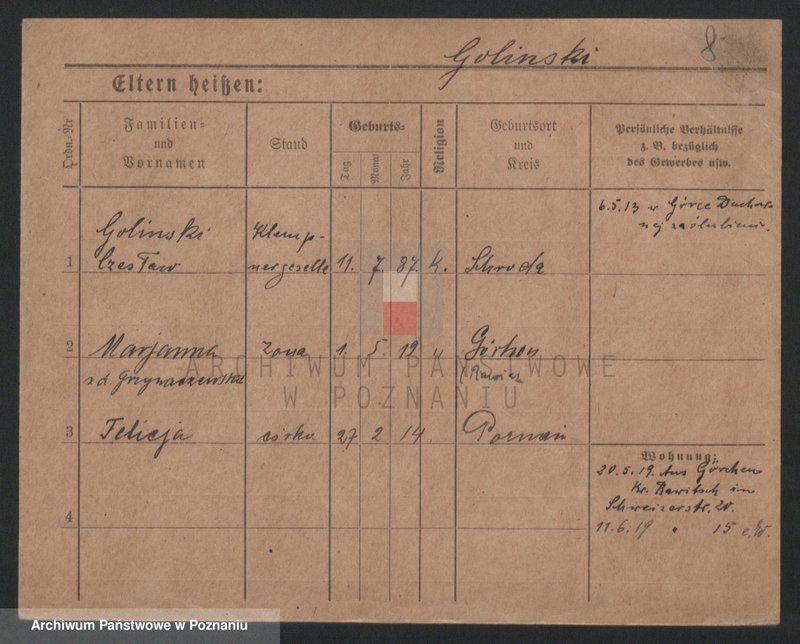 Golinski
8
Eltern heißen:
Ordn.-Nr
Familien-
und
Vornamen
Stand
Geburts-
Tag
Monat
Jahr
Religion
Geburtsort
und
Kreis
Persönliche Verhältnisse
z. B. bezüglich
des Gewerbes usw.
6.5.13 w Górce Duchow-
nej zaślubieni.
1
Golinski
Czesław
Klemp-
nergeselle
11. 7. 87. k. Schroda
2
Marjanna
żona
1. 5. 19 "
Görchen
z d. Grzymaczewska
(Rawicz
3
Felicja
córka
27 2 14
Poznań
Wohnung:
20.5.19. Aus Görchen
Kr. Rawitsch in
Schweizerstr. 20.
11.6.19 " 15
4
ARCHIWUM PAŃSTWOWE
W POZNANIU
Archiwum Państwowe w Poznaniu